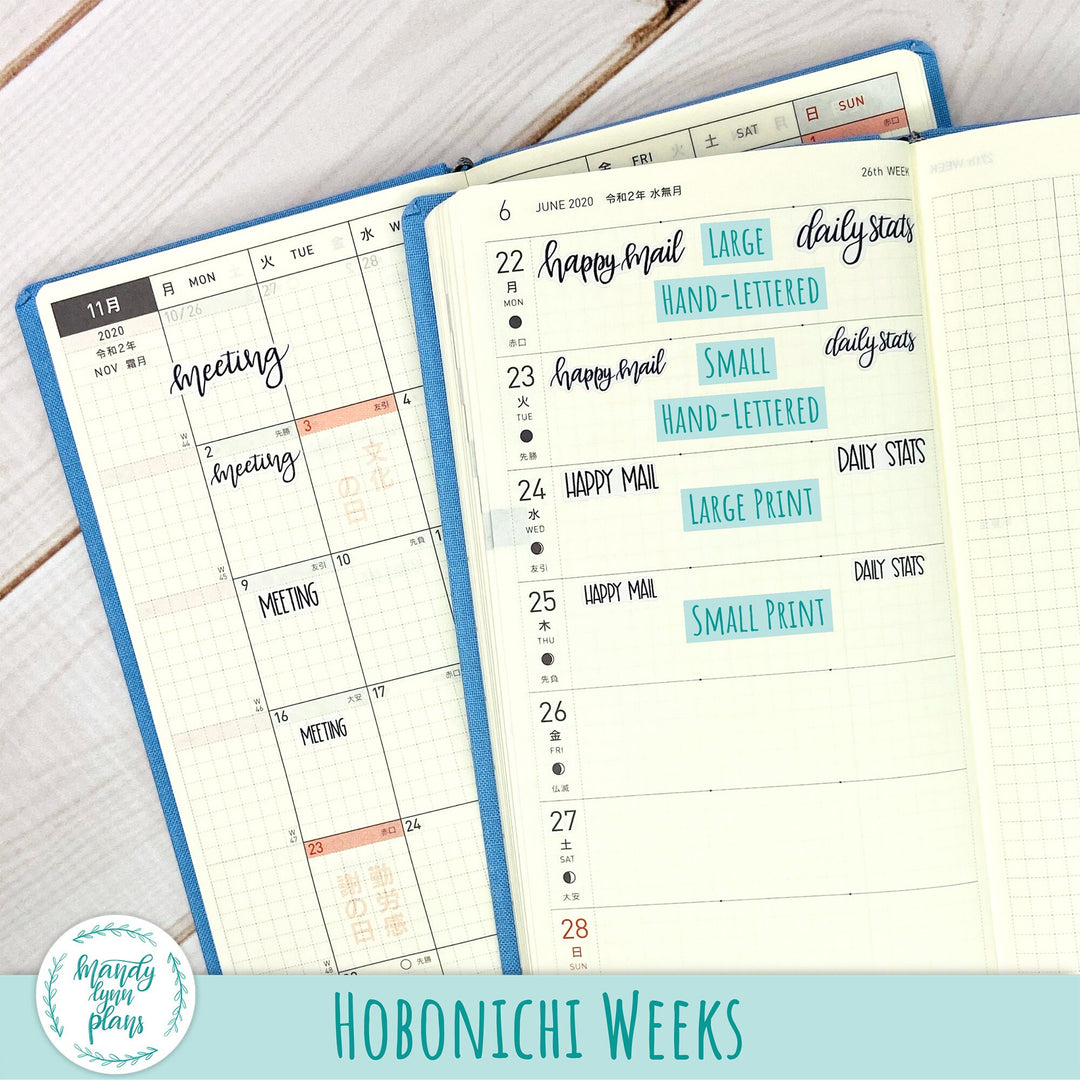 11月
2020
令和2年
NOV 霜月
月 MON
火 TUE
水 W
金 FRI
土 SAT
日 SUN
10/26
27
28
1
赤口
meeting
W
44
2
先勝
meeting
3
友引
文化
の日
4
W
45
9
友引
MEETING
10
先負
1
W
46
16
大安
MEETING
17
赤口
W
47
23
赤口
勤労感
謝の日
24
W
48
先勝
6
JUNE 2020 令和2年 水無月
26th WEEK
22
月
MON
赤口
happy mail
LARGE
HAND-LETTERED
daily stats
23
火
TUE
先勝
happy mail
SMALL
HAND-LETTERED
daily stats
24
水
WED
友引
HAPPY MAIL
LARGE PRINT
DAILY STATS
25
木
THU
先負
HAPPY MAIL
SMALL PRINT
DAILY STATS
26
金
FRI
仏滅
27
土
SAT
大安
28
日
SUN
mandy
lynn
plans
HOBONICHI WEEKS